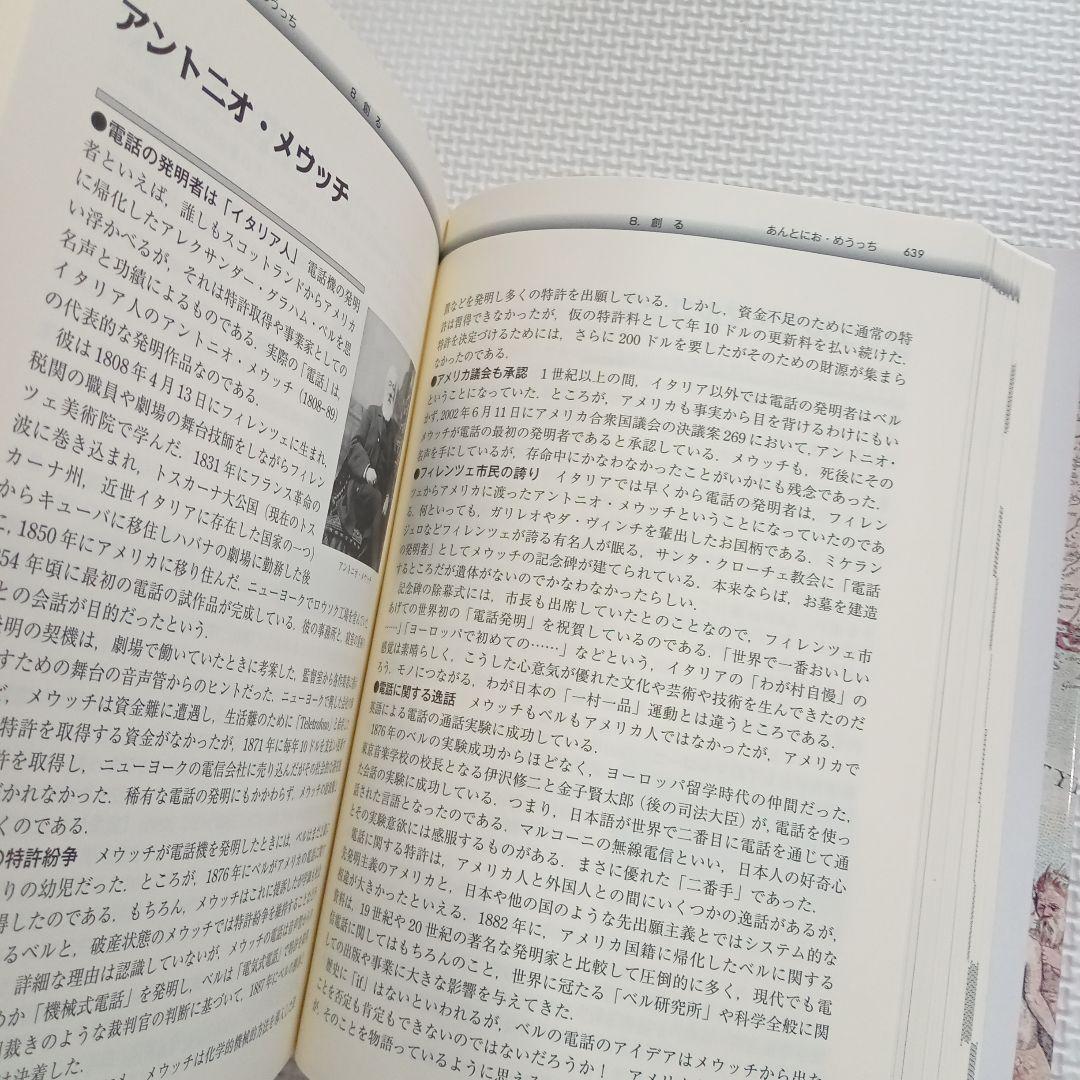 めうっち
8. 創る
アントニオ・メウッチ
●電話の発明者は「イタリア人」 電話機の発明
者といえば，誰しもスコットランドからアメリカ
に帰化したアレクサンダー・グラハム・ベルを思
い浮かべるが，それは特許取得や事業家としての
名声と功績によるものである．実際の「電話」は，
イタリア人のアントニオ・メウッチ（1808-89）
の代表的な発明作品なのである．
彼は1808年4月13日にフィレンツェに生まれ，
税関の職員や劇場の舞台技師をしながらフィレン
ツェ美術院で学んだ．1831年にフランス革命の
波に巻き込まれ，トスカーナ大公国（現在のトス
カーナ州，近世イタリアに存在した国家の一つ）
からキューバに移住しハバナの劇場に勤務した後
に，1850年にアメリカに移り住んだ．ニューヨークでロウソク工場を営んでいた
54年頃に最初の電話の試作品が完成している．彼の事務所と，寝室の
との会話が目的だったという．
アントニオ・メウッチ
発明の契機は，劇場で働いていたときに考案した，監督室から
すための舞台の音声管からのヒントだった．ニューヨークで興した会社の
ど，メウッチは資金難に遭遇し，生活難のために「Teletrofono」と命名した
特許を取得する資金がなかったが，1871年に毎年10ドルを支払い更新す
許を取得し，ニューヨークの電信会社に売り込んだがその社会的
づかれなかった．稀有な電話の発明にもかかわらず，メウッチの
くのである．
の特許紛争 メウッチが電話機を発明したときには，ベルはまだ
りの幼児だった．ところが，1876年にベルがアメリカの電話に関す
得したのである．もちろん，メウッチはこれに提訴したが
るベルと，破産状態のメウッチでは特許紛争を維持することに
詳細な理由は認識していないが，メウッチの電話は
めか「機械式電話」を発明し，ベルは「電気式電話」で特許を
岡裁きのような裁判官の判断に基づいて，1887年に
は決着した．
メウッチは化学的機械的方法を
8. 創る あんとにお・めうっち 639
置などを発明し多くの特許を出願している．しかし，資金不足のために通常の特
許は習得できなかったが，仮の特許料として年10ドルの更新料を払い続けた．
特許を決定づけるためには，さらに200ドルを要したがそのための財源が集まら
なかったのである．
●アメリカ議会も承認 1世紀以上の間，イタリア以外では電話の発明者はベル
ということになっていた．ところが，アメリカも事実から目を背けるわけにもい
かず，2002年6月11日にアメリカ合衆国議会の決議案269において，アントニオ・
メウッチが電話の最初の発明者であると承認している．メウッチも，死後にその
名声を手にしているが，存命中にかなわなかったことがいかにも残念であった．
●フィレンツェ市民の誇り イタリアでは早くから電話の発明者は，フィレン
ツェからアメリカに渡ったアントニオ・メウッチということになっていたのであ
る．何といっても，ガリレオやダ・ヴィンチを輩出したお国柄である．ミケラン
ジェロなどフィレンツェが誇る有名人が眠る，サンタ・クローチェ教会に「電話
の発明者」としてメウッチの記念碑が建てられている．本来ならば，お墓を建造
するところだが遺体がないのでかなわなかったらしい．
記念碑の除幕式には，市長も出席していたとのことなので，フィレンツェ市
あげての世界初の「電話発明」を祝賀しているのである．「世界で一番おいしい
……」「ヨーロッパで初めての……」などという，イタリアの「わが村自慢」の
感覚は素晴らしく，こうした心意気が優れた文化や芸術や技術を生んできたのだ
ろう．モノにつながる，わが日本の「一村一品」運動とは違うところである．
●電話に関する逸話 メウッチもベルもアメリカ人ではなかったが，アメリカで
英語による電話の通話実験に成功している．
1876年のベルの実験成功からほどなく，ヨーロッパ留学時代の仲間だった，
東京音楽学校の校長となる伊沢修二と金子賢太郎（後の司法大臣）が，電話を使っ
た会話の実験に成功している．つまり，日本語が世界で二番目に電話を通じて通
話された言語となったのである．マルコーニの無線電信といい，日本人の好奇心
とその実験意欲には感服するものがある．まさに優れた「二番手」であった．
電話に関する特許は，アメリカ人と外国人との間にいくつかの逸話があるが，
先発明主義のアメリカと，日本や他の国のような先出願主義とではシステム的な
相違が大きかったといえる．1882年に，アメリカ国籍に帰化したベルに関する
資料は，19世紀や20世紀の著名な発明家と比較して圧倒的に多く，現代でも電
信電話に関してはもちろんのこと，世界に冠たる「ベル研究所」や科学全般に関
しての出版や事業に大きな影響を与えてきた．
歴史に「if」はないといわれるが，ベルの電話のアイデアはメウッチから出た
ことを否定も肯定もできないのではないだろうか！
が，そのことを物語っているように思える．